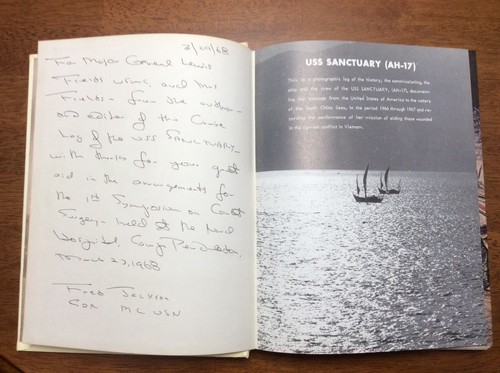 3/29/68
For Major General Lewis
Fields USMC, and Mrs
Fields - from the author
and editor of the Cruise
Log of the USS SANCTUARY -
with thanks for your great
aid in the arrangements for
the 1st Symposium on Combat
Surgery - held at the Naval
Hospital, Camp Pendleton,
March 27, 1968
Fred Jackson
CDR MC USN
USS SANCTUARY (AH-17)
This is a photographic log of the history, the commissioning, the
ship and the crew of the USS SANCTUARY, (AH-17), document-
ing her passage from the United States of America to the waters
of the South China Seas, in the period 1966 through 1967 and re-
cording the performance of her mission of aiding those wounded
in the current conflict in Vietnam.